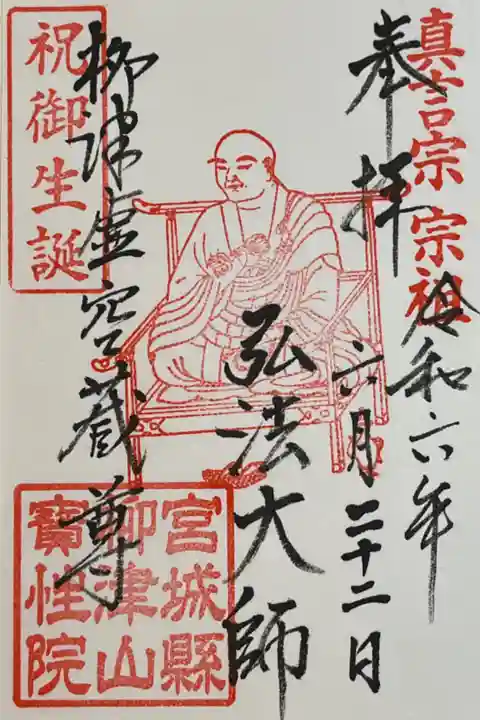 真言宗 宗祖
奉拝
令和六年
六月二十二日
弘法大師
柳津虚空蔵尊
祝御生誕
宮城縣
柳津山
寳性院